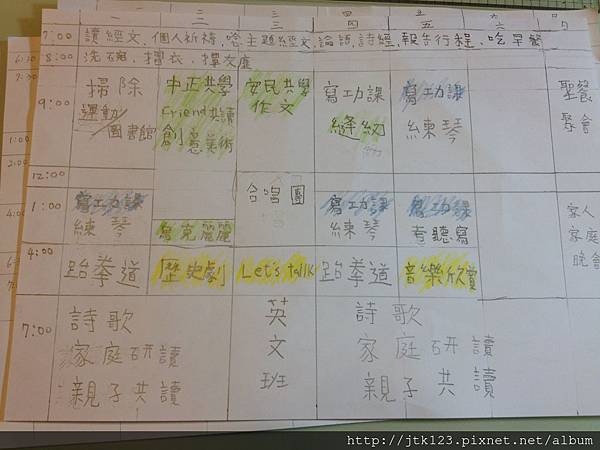 一 二 三 四 五 六 日
7:00 讀經文、個人祈禱、唸主題經文、論語、詩經、報告行程、吃早餐
8:00 洗碗、摺衣、擦灰塵
9:00
掃除 中正共學 安民共學 寫功課 寫功課 聖餐
運動 Friend共讀 作文 縫紉 練琴 聚會
圖書館 創意美術
12:00
合唱團
1:00 寫功課 寫功課 寫功課 家人
練琴 烏克麗麗 練琴 考聽寫 家庭
4:00 晚會
跆拳道 歷史劇 Let's talk 跆拳道 音樂欣賞
7:00
詩歌 英 詩歌
家庭研讀 文 家庭研讀
親子共讀 班 親子共讀
http://jtk123.pixnet.net/album